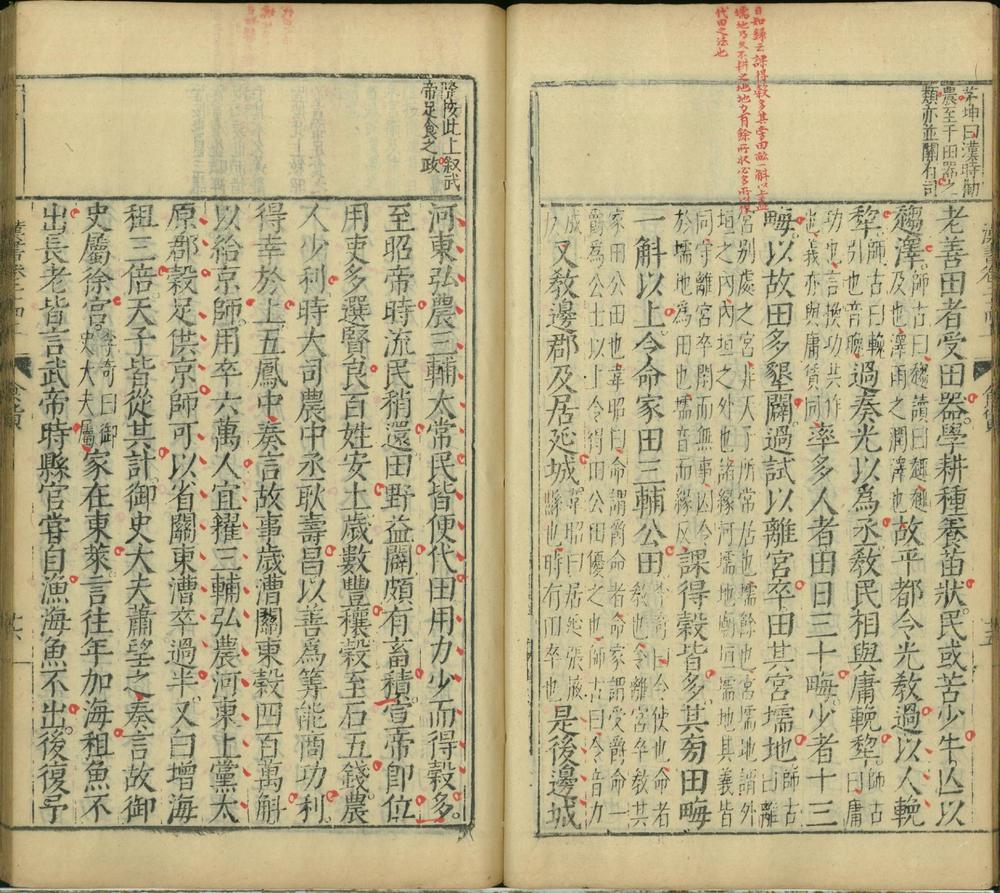 日知錄云課得穀多其旁田畝一斛以上蓋
壖地乃久不耕之地地力有餘所收必多所以
代田之法也
茅坤曰漢時勸
農至于田器之
類亦並關有司
老善田者受田器學耕種養苗狀民或苦少牛亡以
趨澤師古曰趨讀曰趣趣及也澤雨之潤澤也故平都令光教過以人輓
犂師古曰輓引也音晚過奏光以爲丞教民相與庸輓犂師古曰庸
功也言換功共作也義亦與庸賃同率多人者田日三十晦少者十三
晦以故田多墾闢過試以離宮卒田其宮壖地師古曰離
宮別處之宮非天子所常居也壖餘也宮壖地謂外
垣之內內垣之外也諸緣河壖地廟垣壖地其義皆
同守離宮卒閑而無事因令於壖地爲田也壖音而緣反課得穀皆多其旁田晦
一斛以上令命家田三輔公田李奇曰令使也命者教也令離宮卒教其
家田公田也韋昭曰命謂爵命者命家謂受爵命一
爵爲公士以上令得田公田優之也師古曰令音力
成反又教邊郡及居延城韋昭曰居延張掖縣也時有田卒也是後邊城
漢書卷二十四上
食貨
廿五
隆按此上叙武
帝足食之政
河東弘農三輔太常民皆便代田用力少而得穀多
至昭帝時流民稍還田野益闢頗有畜積宣帝即位
用吏多選賢良百姓安土歲數豐穰穀至石五錢農
人少利時大司農中丞耿壽昌以善爲筭能商功利
得幸於上五鳳中奏言故事歲漕關東穀四百萬斛
以給京師用卒六萬人宜糴三輔弘農河東上黨太
原郡穀足供京師可以省關東漕卒過半又白增海
租三倍天子皆從其計御史大夫蕭望之奏言故御
史屬徐宮李奇曰御史大夫屬家在東萊言往年加海租魚不
出長老皆言武帝時縣官嘗自漁海魚不出後復予